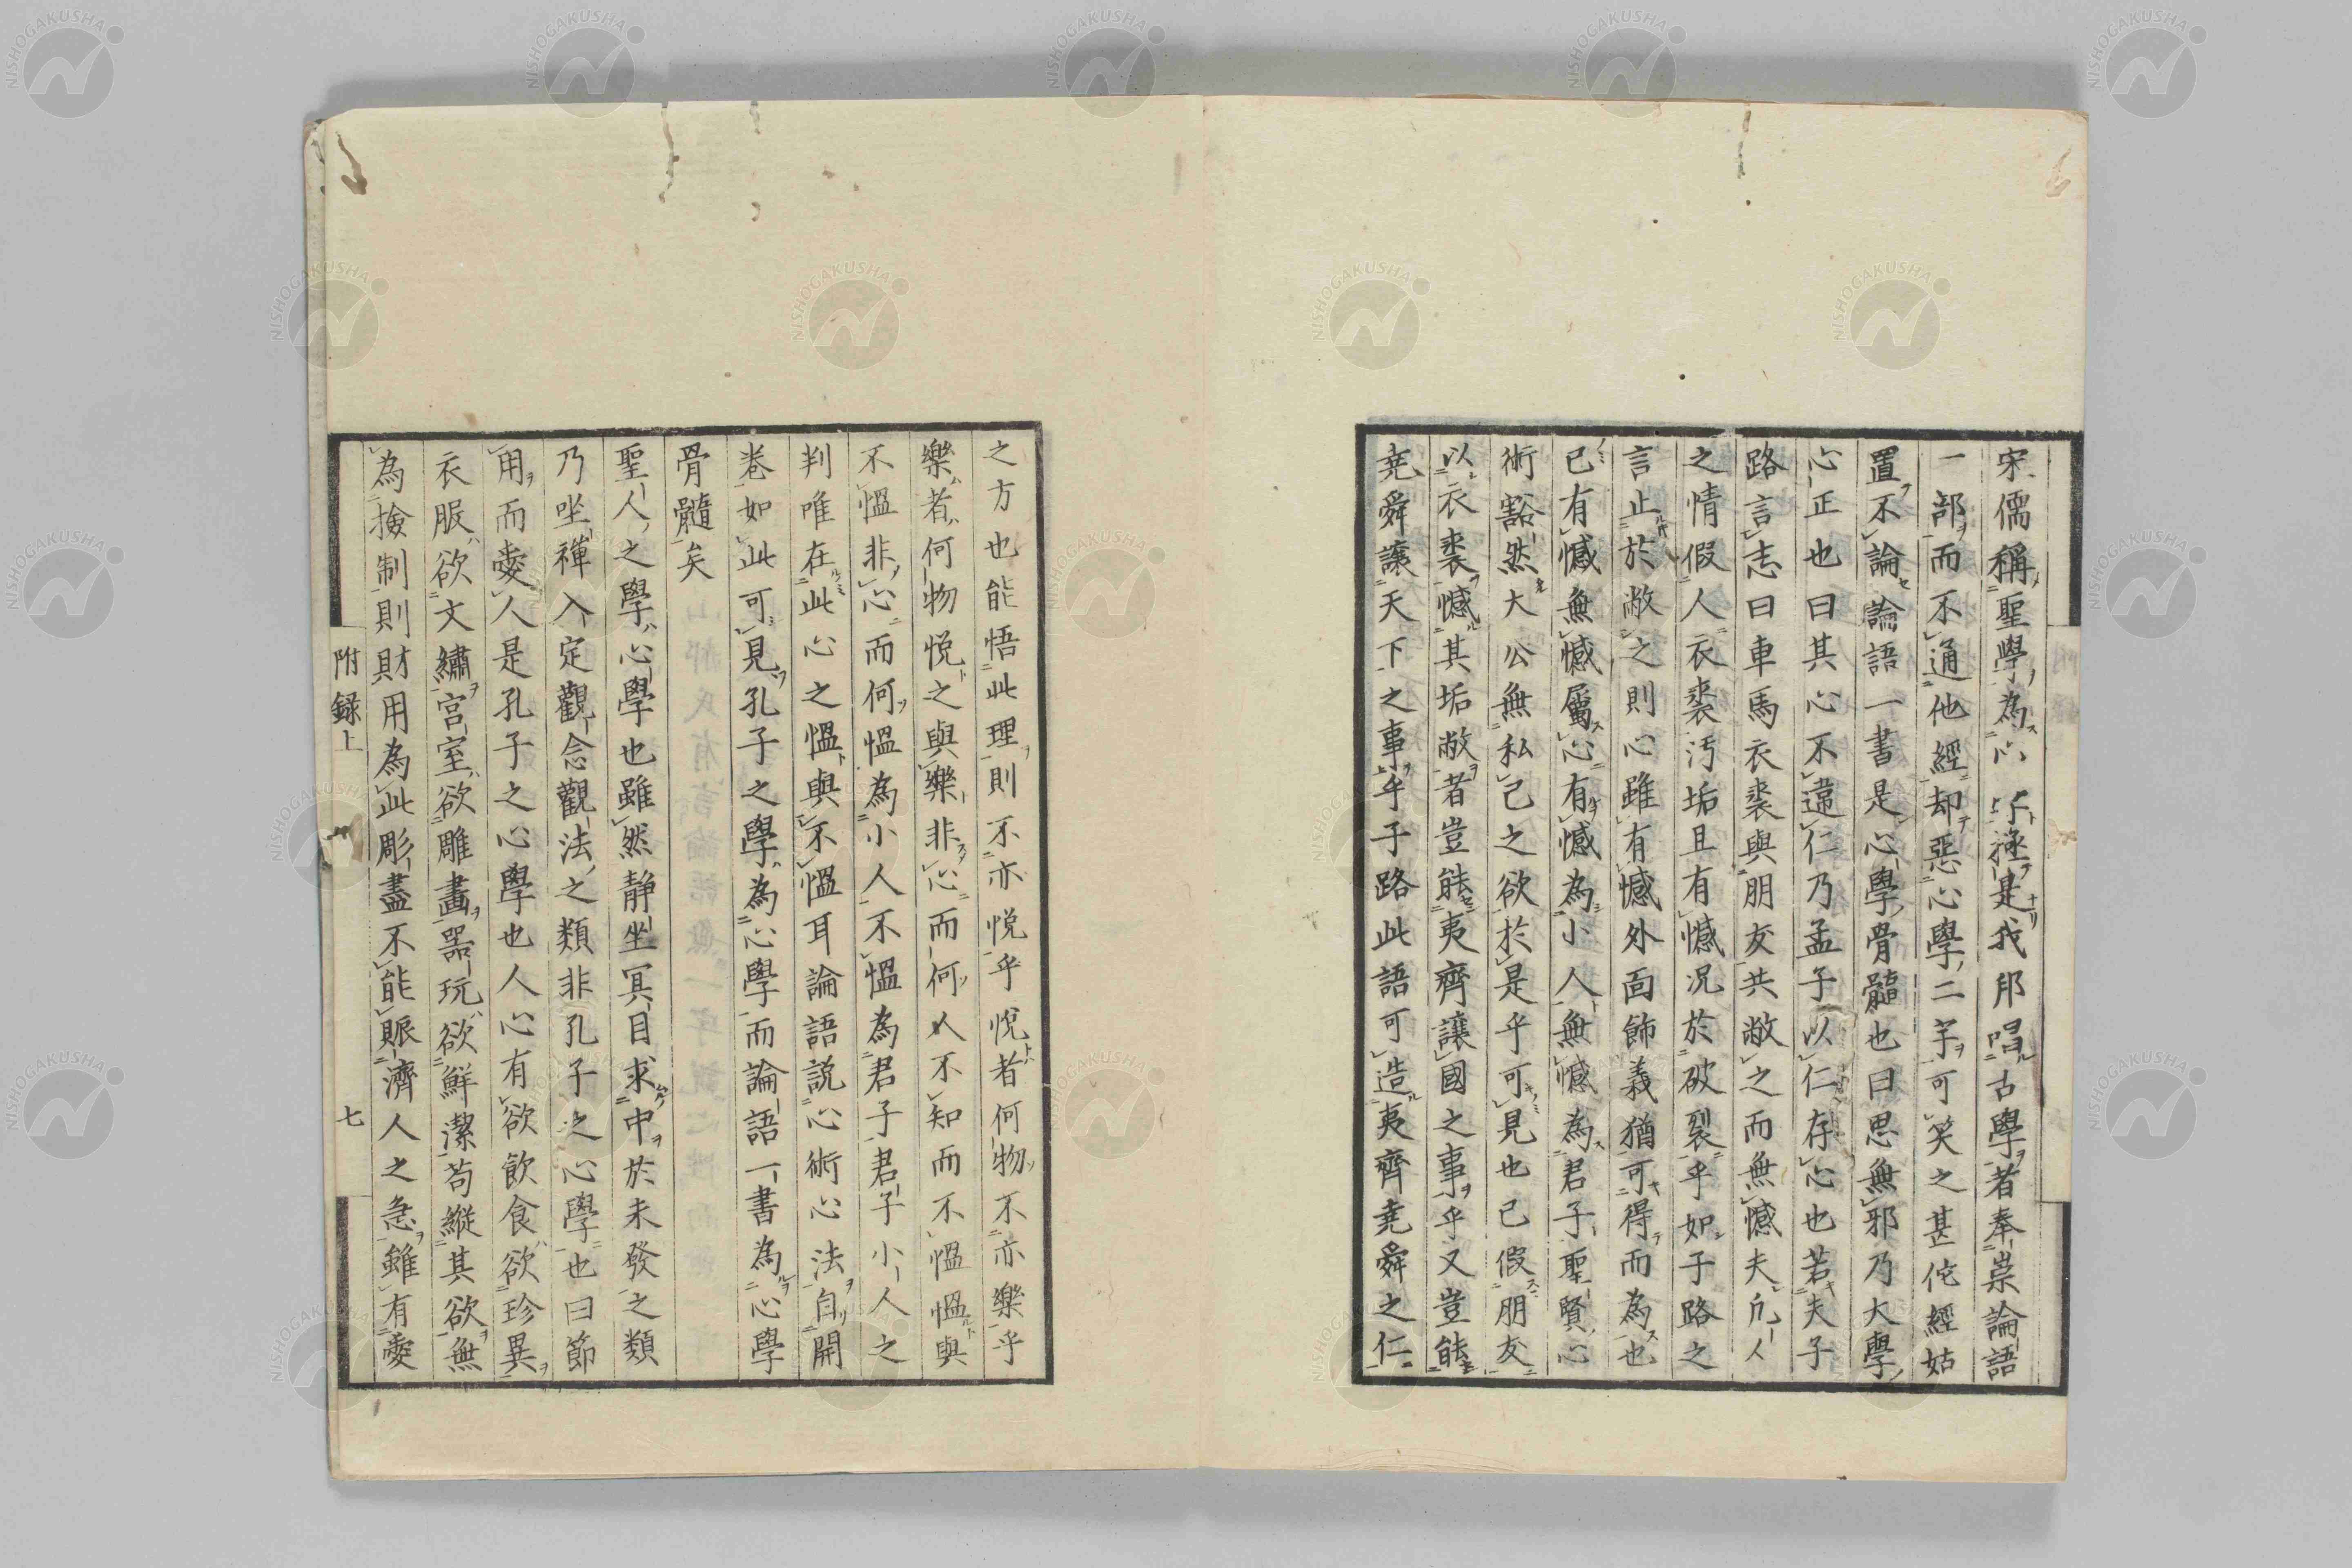 宋儒稱聖學為心學極是我邦唱古學者奉崇論語
一部而不通他經却惡心學二字可笑之甚佗經姑
置不論論語一書是心學骨髓也曰思無邪乃大學
心正也曰其心不違仁乃孟子以仁存心也若夫子
路言志曰車馬衣裘與朋友共敝之而無憾夫凡人
之情假人衣裘汚垢且有憾况於破裂乎如子路之
言止於敝之則心雖有憾外面飾義猶可得而為也
已有憾無憾屬心有憾為小人無憾為君子聖賢心
術豁然大公無私己之欲於是乎可見也已假朋友
以衣裘憾其垢敝者豈能夷齊讓國之事乎又豈能
堯舜讓天下之事乎子路此語可造夷齊堯舜之仁
之方也能悟此理則不亦悅乎悅者何物不亦樂乎
樂者何物悅之與樂非心而何人不知而不慍慍與
不慍非心而何慍為小人不慍為君子君子小人之
判唯在此心之慍與不慍耳論語說心術心法自開
卷如此可見孔子之學為心學而論語一書為心學
骨髓矣
聖人之學心學也雖然静坐冥目求中於未發之類
乃坐禪入定觀念觀法之類非孔子之心學也曰節
用而愛人是孔子之心學也人心有欲飲食欲珍異
衣服欲文繡宮室欲雕畫器玩欲鮮潔苟縱其欲無
為撿制則財用為此彫盡不能賑濟人之急雖有愛
附録上
七
NISHOGAKUSHA